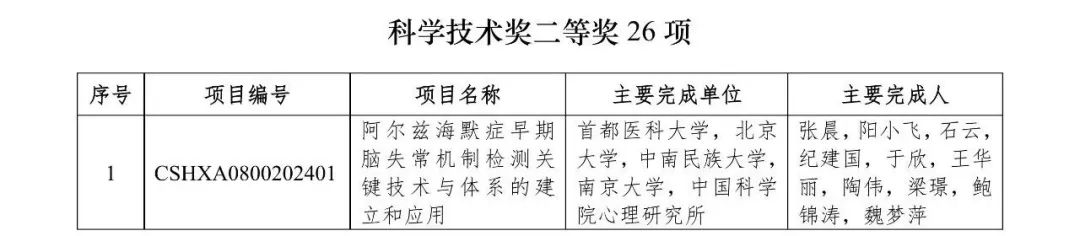 科学技术奖二等奖 26 项
序号 项目编号 项目名称 主要完成单位 主要完成人
1 CSHXA0800202401
阿尔兹海默症早期
脑失常机制检测关
键技术与体系的建
立和应用
首都医科大学，北京
大学，中南民族大学，
南京大学，中国科学
院心理研究所
张晨，阳小飞，石云，
纪建国，于欣，王华
丽，陶伟，梁璟，鲍
锦涛，魏梦萍